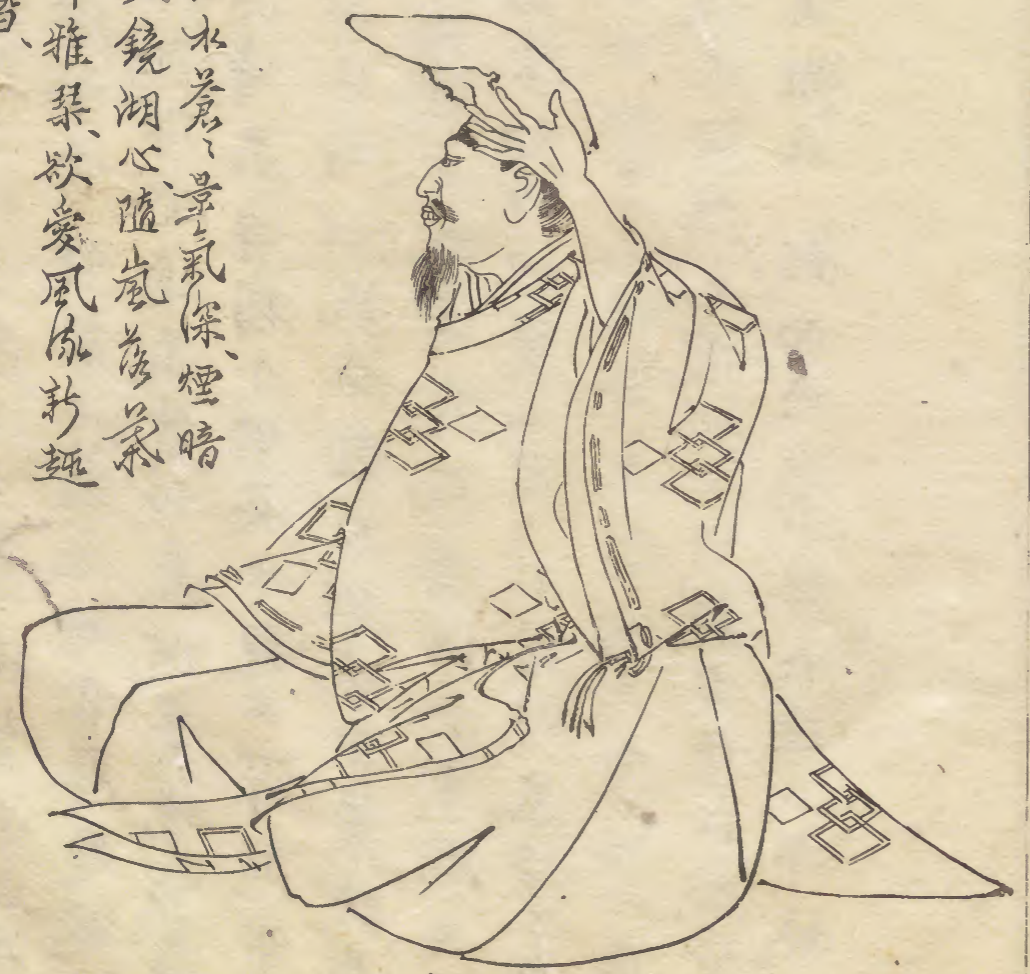 水蒼〻景氣深、煙暗
鏡湖心、隨嵐落葉
雅琴、欲愛風流新趣